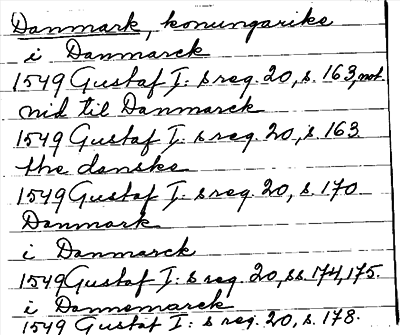 Danmark, konungarike
i Danmarck
1549 Gustaf I: s reg. 20, s. 163, not.
nid til Danmarck
1549 Gustaf I: s reg. 20, s. 163
the danske
1549 Gustaf I: s reg. 20, s. 170
Danmark
i Danmarck
1549 Gustaf I: s reg. 20, ss. 174, 175.
i Dannemarck
1549 Gustaf I: s reg. 20, s. 178.